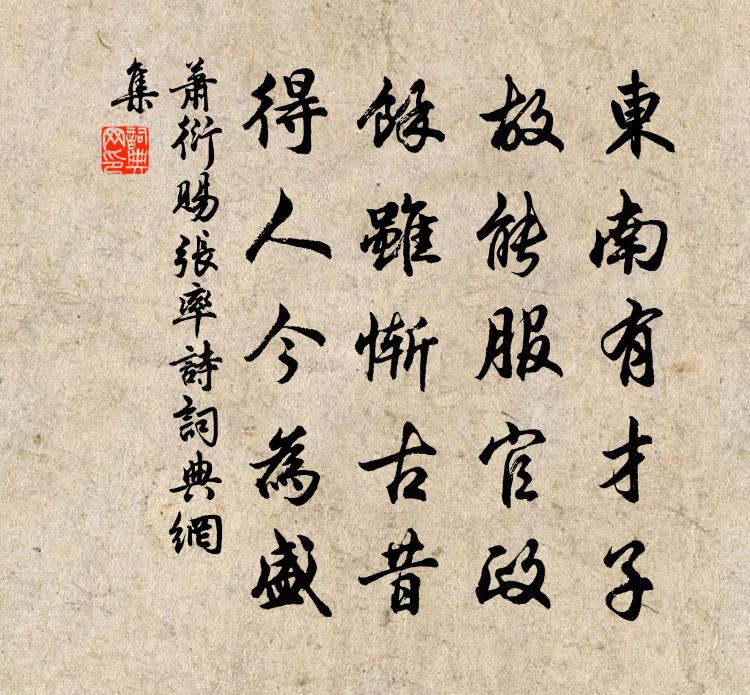 東南有才子
故能服官政
餘雖慚古昔
得人今為盛
蕭衍賜張率詩詞典網
集
詞典
网印